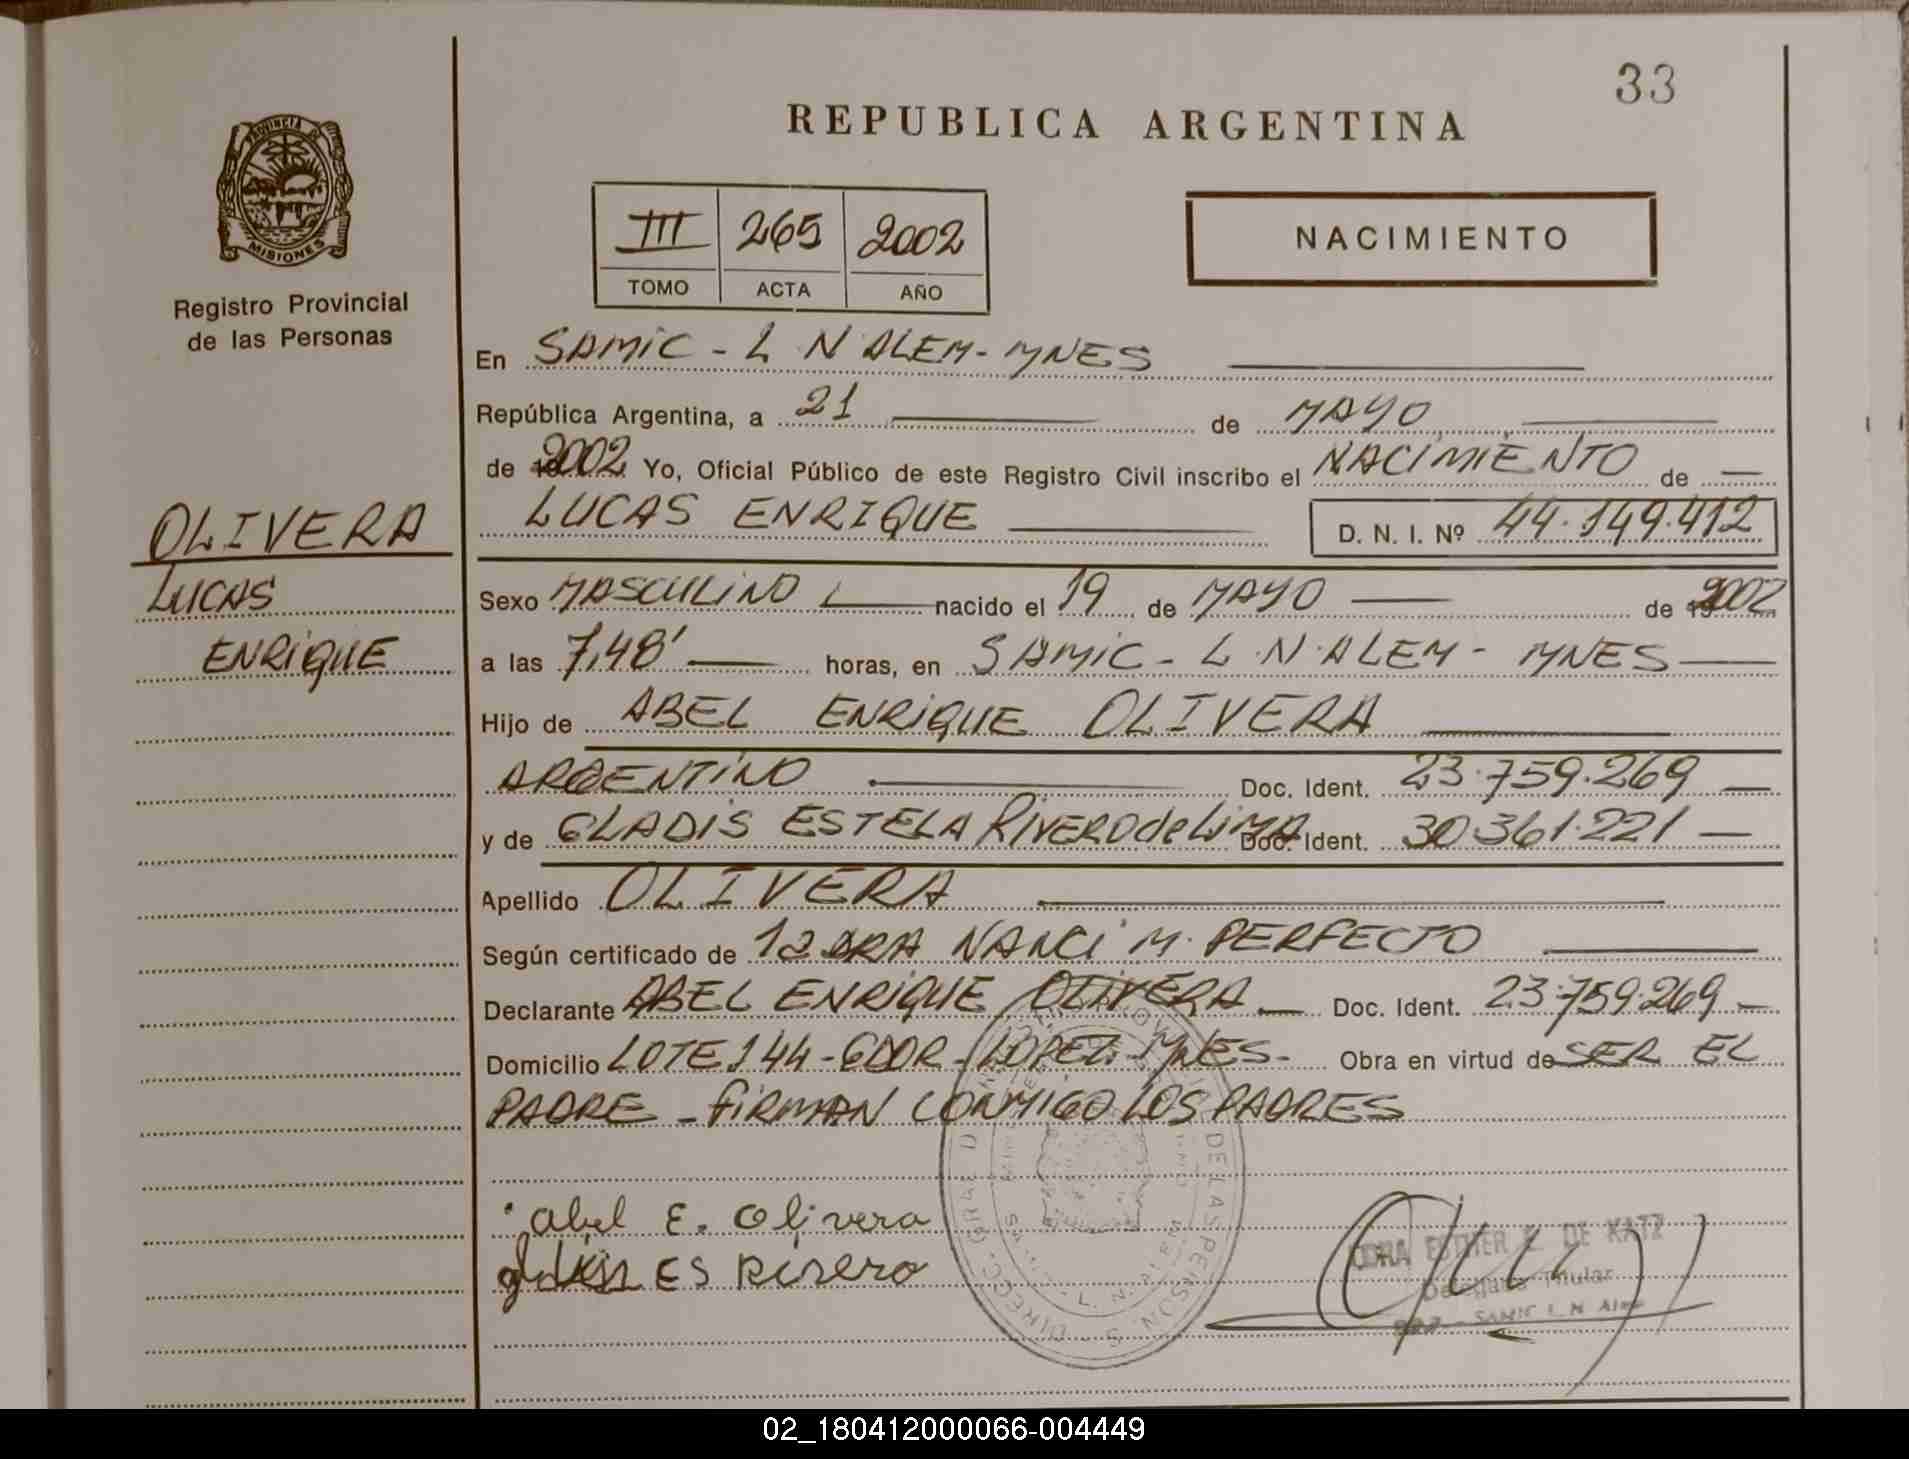 33
REPUBLICA ARGENTINA
PROVINCIA DE
MISIONES
Registro Provincial
de las Personas
III 265 2002
TOMO ACTA AÑO
NACIMIENTO
En SAMIC - L N ALEM - MNES
República Argentina, a 21 de MAYO
de 2002 Yo, Oficial Público de este Registro Civil inscribo el NACIMIENTO de
LUCAS ENRIQUE D. N. I. Nº 44.149.412
OLIVERA
LUCAS
ENRIQUE
Sexo MASCULINO nacido el 19 de MAYO de 2002
a las 7,48' horas, en SAMIC - L.N.ALEM - MNES
Hijo de ABEL ENRIQUE OLIVERA
ARGENTINO Doc. Ident. 23.759.269
y de GLADIS ESTELA RIVERO de LIMA Doc. Ident. 30.361.221
Apellido OLIVERA
Según certificado de DRA NANCI M. PERFECTO
Declarante ABEL ENRIQUE OLIVERA Doc. Ident. 23.759.269
Domicilio LOTE 144 - GDOR - LOPEZ - MNES - Obra en virtud de SER EL
PADRE - FIRMAN CONMIGO LOS PADRES
Abel E. Olivera
ES Rivero
ESTHER E. DE KATZ
Delegada Titular
SAMIC L. N. Alem
02_180412000066-004449